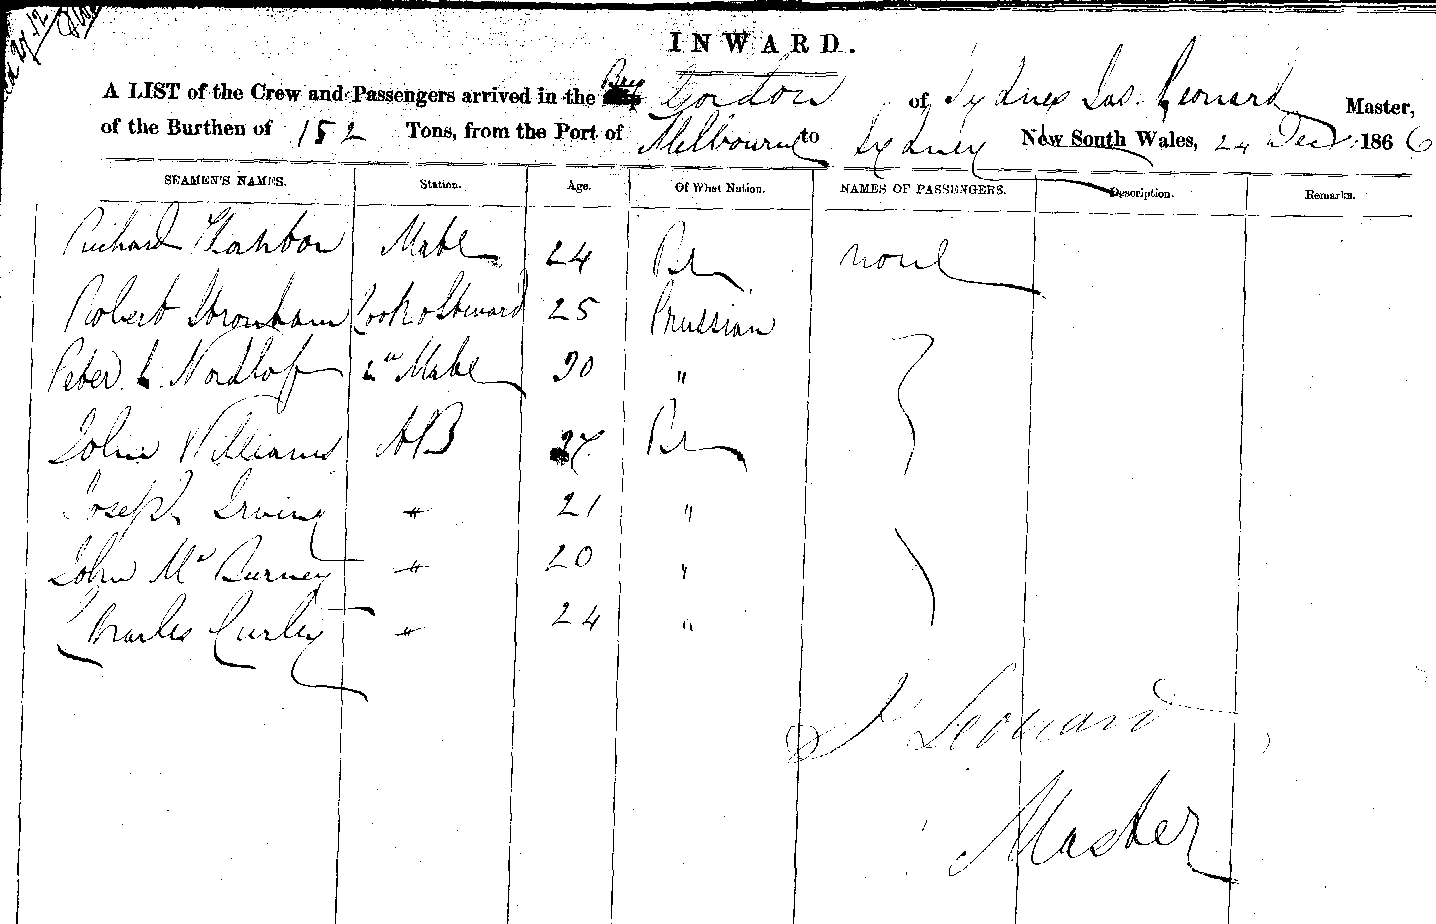 INWARD.
A LIST of the Crew and Passengers arrived in the Brig Gordon of Sydney Jas. Leonard Master,
of the Burthen of 152 Tons, from the Port of Melbourne to Sydney New South Wales, 24 Dec 1866
SEAMEN'S NAMES. Station. Age. Of What Nation. NAMES OF PASSENGERS. Description. Remarks.
Richard Mate 24 Br none
Robert Cook & Steward 25 Prussian
Peter L Nordhof 2nd Mate 30 "
John Williams AB 27 Br
Joseph Irving " 21 "
John Mc Burney " 20 "
Charles Curley " 24 "
J Leonard
Master